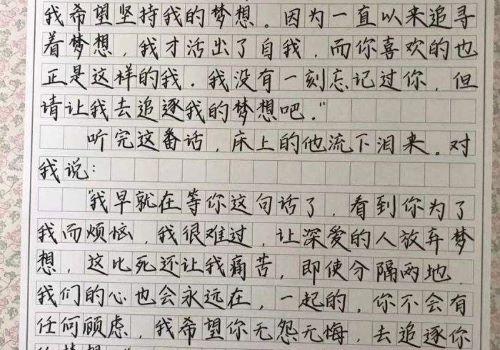 我希望坚持我的梦想。因为一直以来追寻
着梦想，我才活出了自我，而你喜欢的也
正是这样的我。我没有一刻忘记过你，但
请让我去追逐我的梦想吧。"
听完这番话，床上的他流下泪来。对
我说：
"我早就在等你这句话了，看到你为了
我而烦恼，我很难过，让深爱的人放弃梦
想，这比死还让我痛苦，即使分隔两地，
我们的心也会永远在，一起的，你不会有
任何顾虑，我希望你无怨无悔，去追逐你
的梦想。"